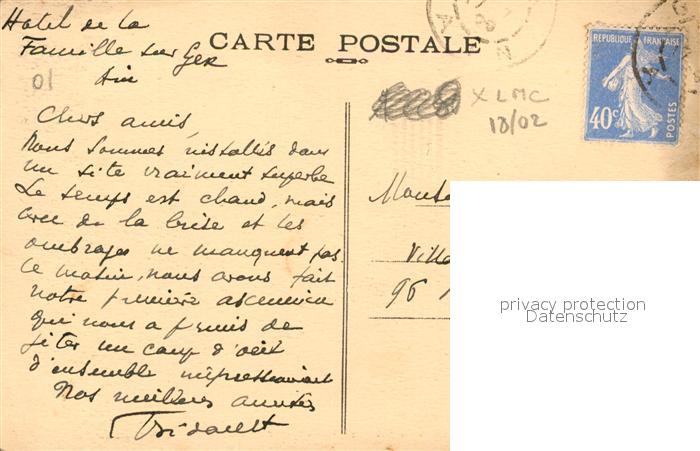 Hotel de la
Famille sur Gex
Ain
01
CARTE POSTALE
X LMC
18/02
REPUBLIQUE FRANÇAISE
40c
POSTES
Chers amis,
Nous sommes installés dans
un site vraiment superbe
Le temps est chaud, mais
avec de la brise et les
ombrages ne manquent pas
Ce matin, nous avons fait
notre première ascension
qui nous a permis de
jeter un coup d'oeil
d'ensemble impressionnant
Nos meilleures amitiés
Villa
96
privacy protection
Datenschutz